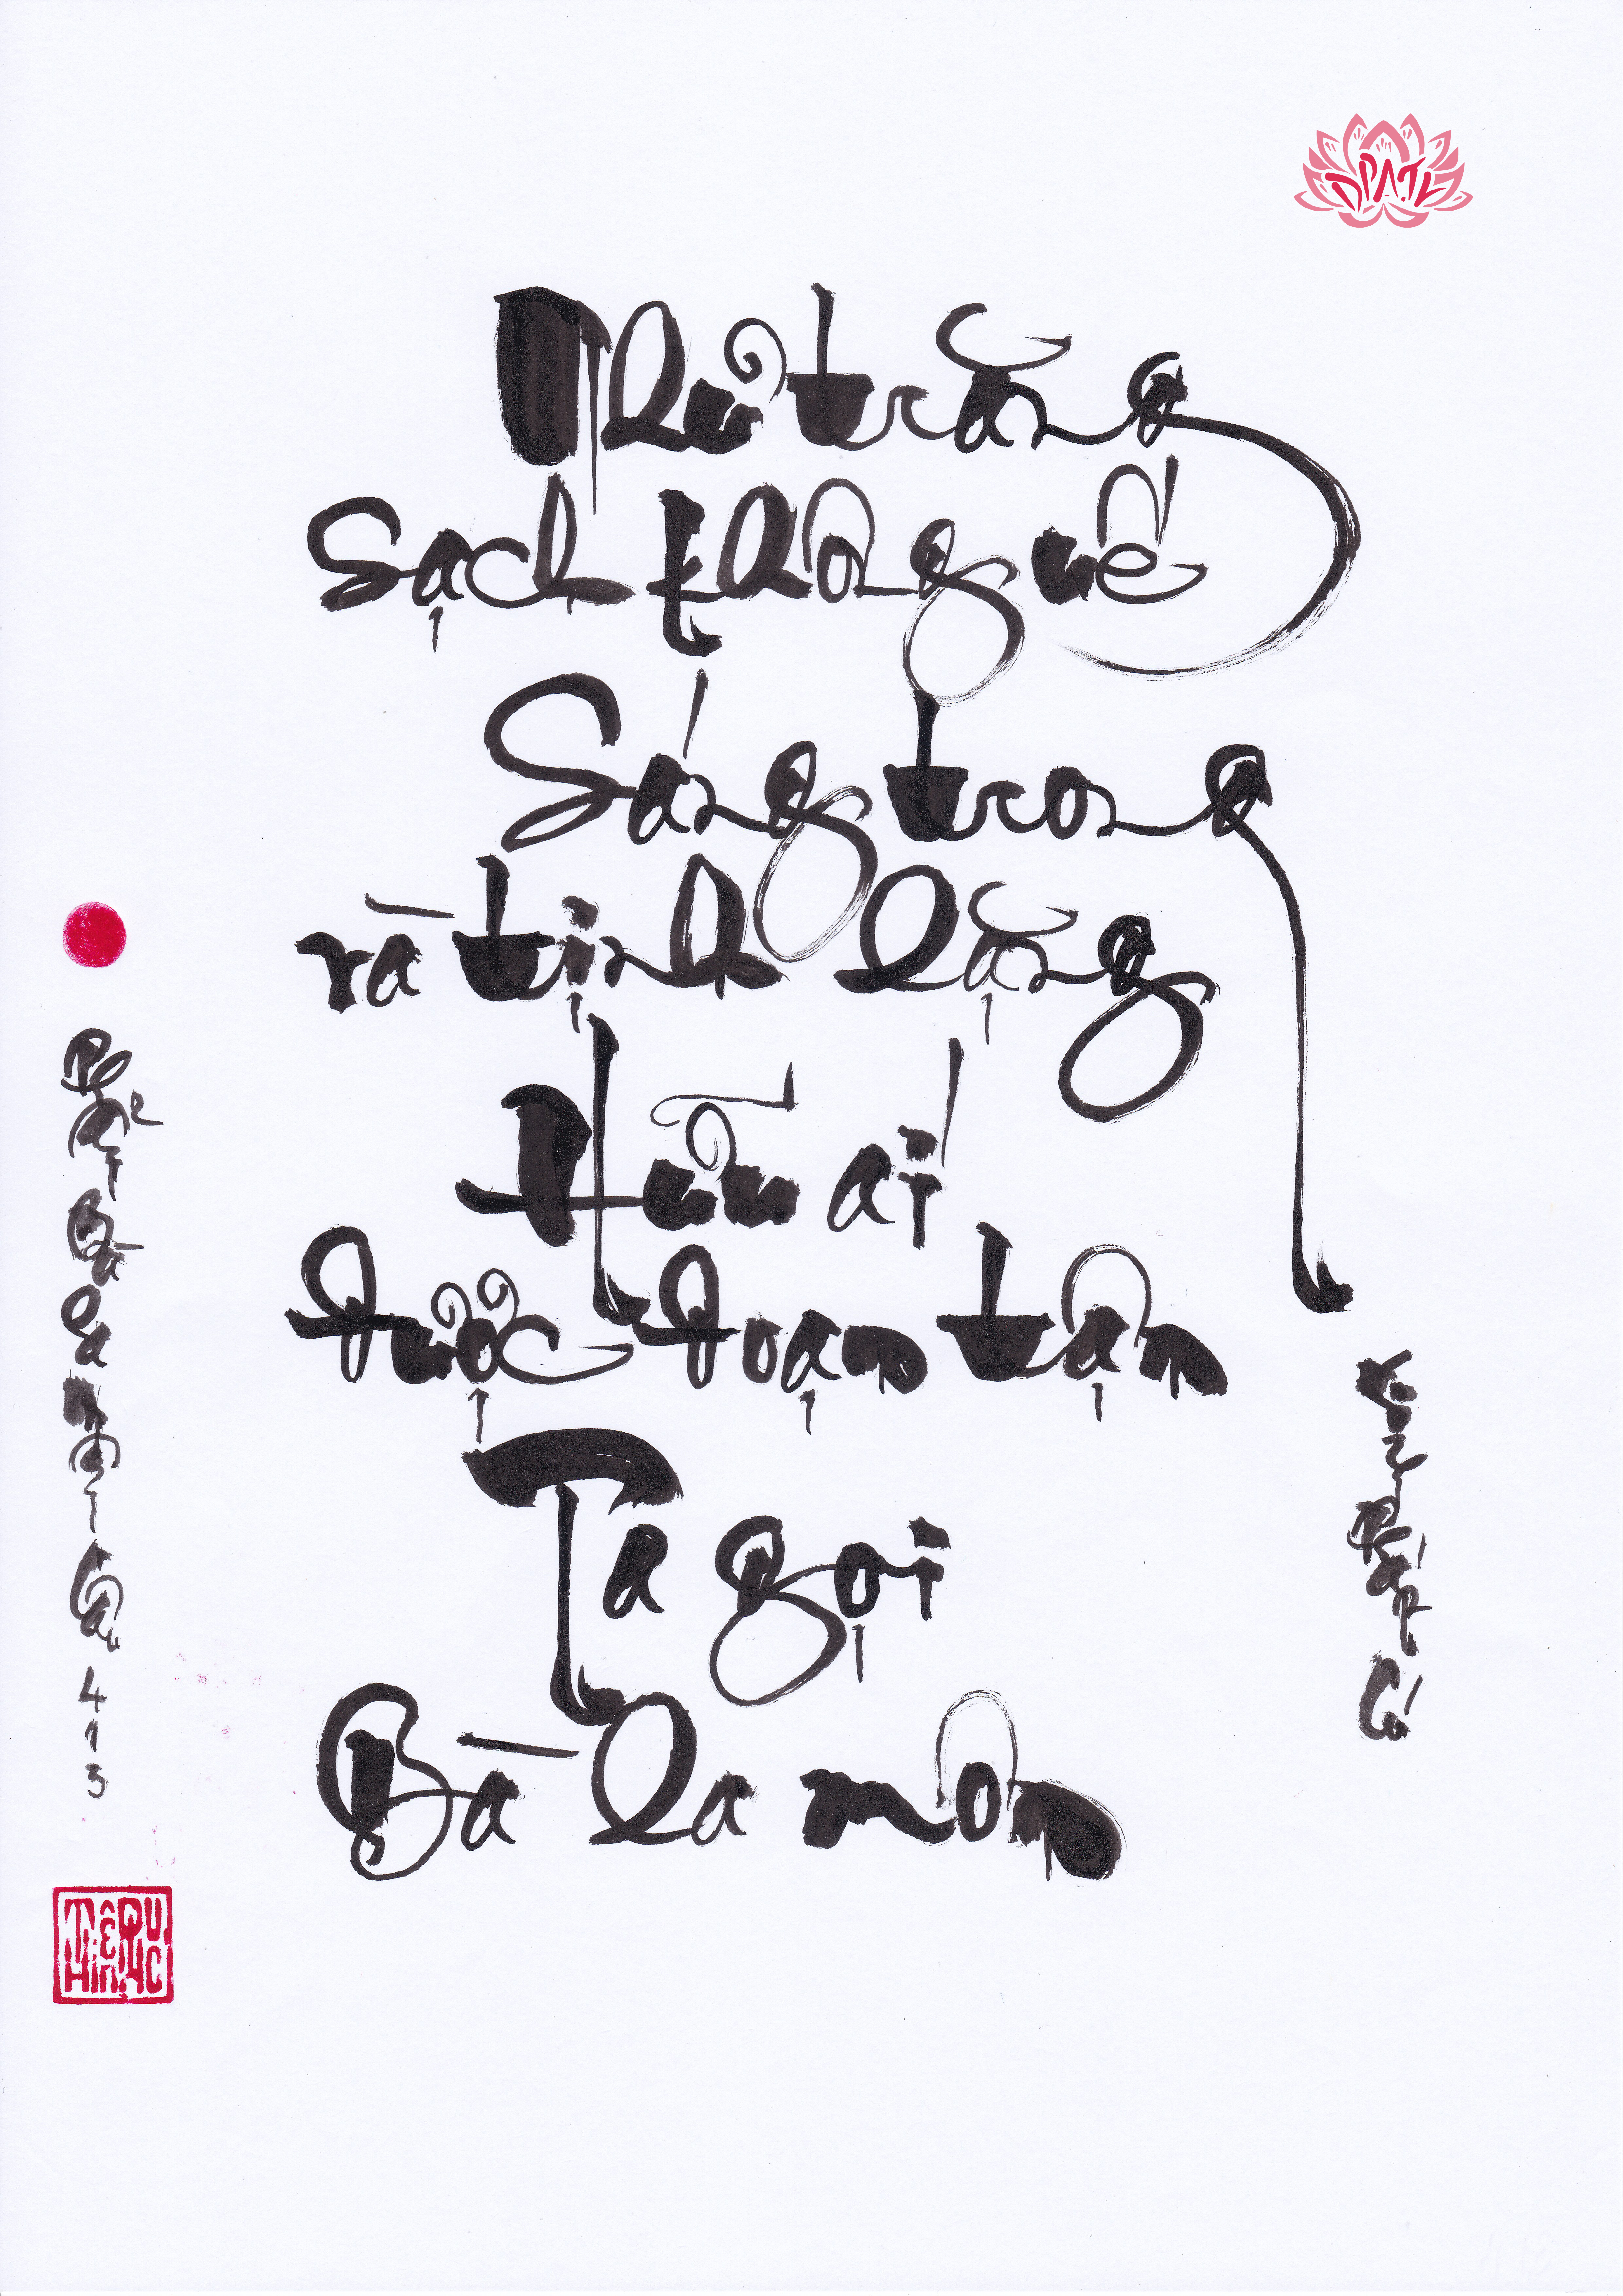 Như trăng
sạch không uế
Sáng trong
và tịnh lặng
Hữu ái
được đoạn tận
Ta gọi
Bà la môn
Kinh Pháp Cú
Phẩm Bà La Môn Câu 413